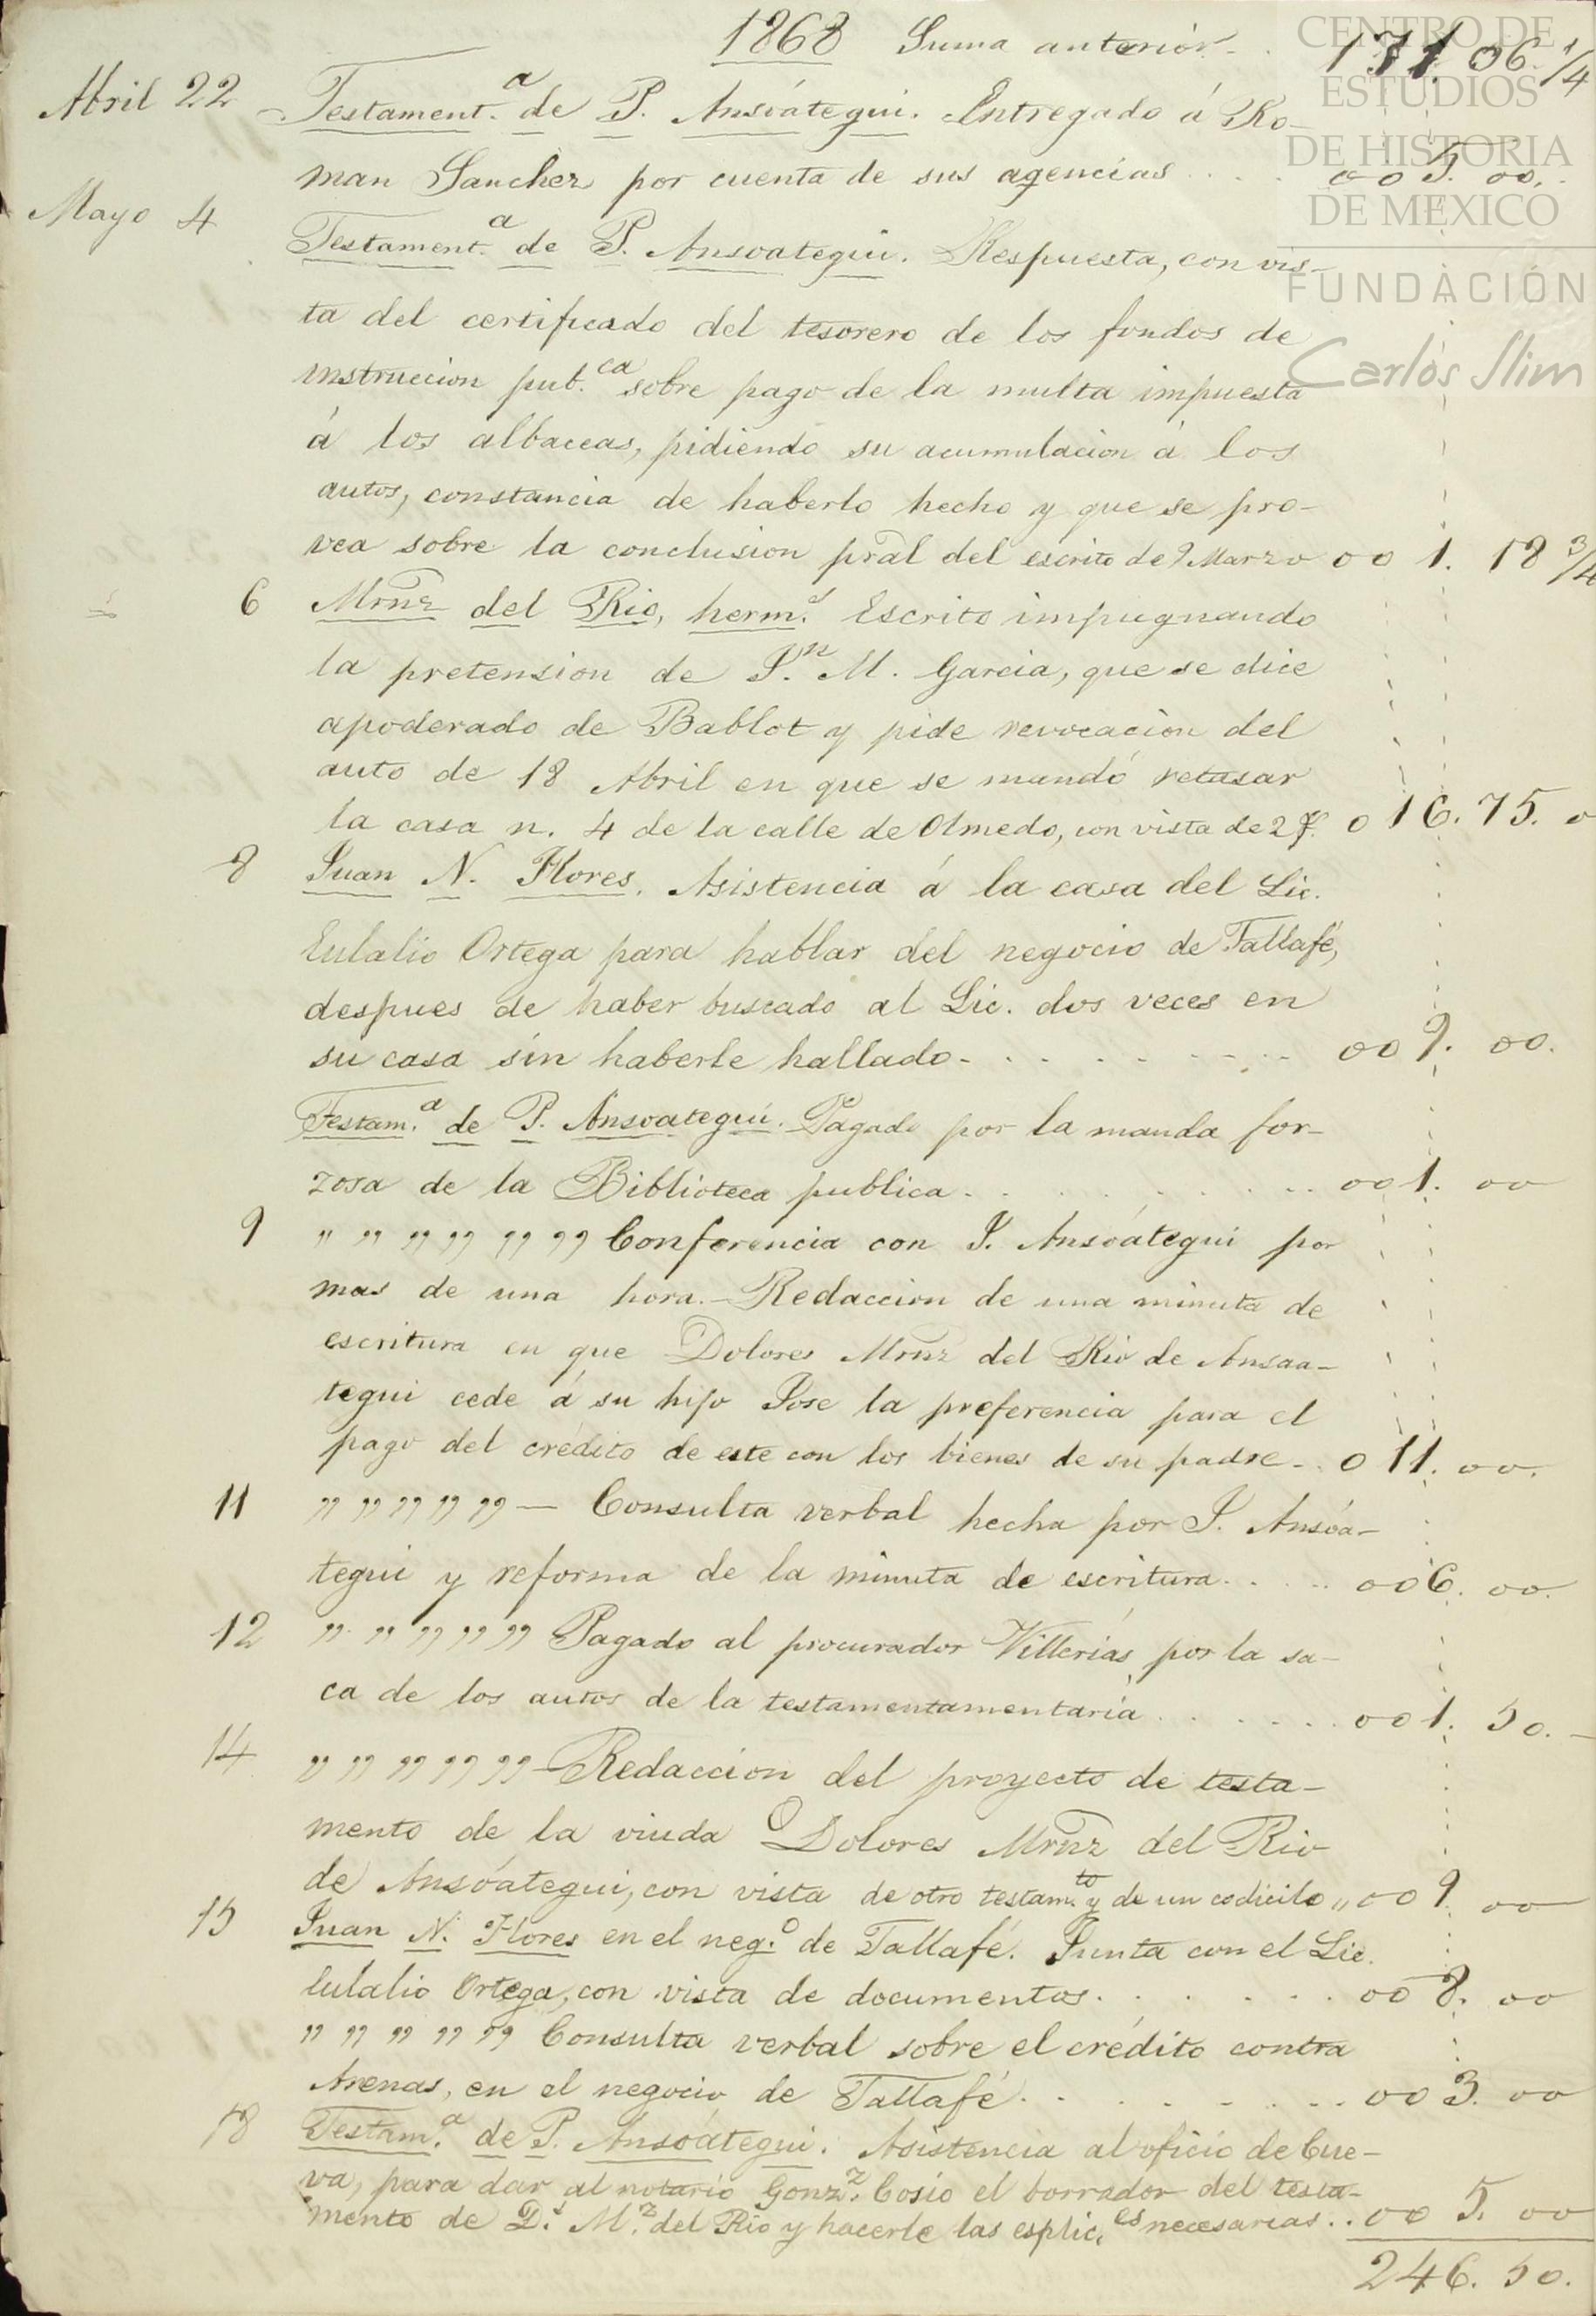 1868 Suma anterior. . 171. 06. 1/4
Abril 22 Testament.a de P. Ansóategui. Entregado á Ro-
man Sanchez por cuenta de sus agencias . . . . 005. 00.
Mayo 4 Testament.a de P. Ansoategui. Respuesta, con vis-
ta del certificado del tesorero de los fondos de
instruccion pub.ca sobre pago de la multa impuesta
á los albaceas, pidiendo su acumulacion á los
autos, constancia de haberlo hecho y que se pro-
vea sobre la conclusion pral del escrito de 9 Marzo 00 1. 18 3/4
6 Mrnz del Rio, herm.s Escrito impugnando
la pretension de J.n M. Garcia, que se dice
apoderado de Bablot y pide revocacion del
auto de 18 Abril en que se mandó retasar
la casa n. 4 de la calle de Olmedo, con vista de 27f. 0 16. 75. 0
8 Juan N. Flores. Asistencia á la casa del Lic.
Eulalio Ortega para hablar del negocio de Tallafé,
despues de haber buscado al Lic. dos veces en
su casa sin haberle hallado - . . . . . . . . 00 9. 00.
Testam.a de P. Ansoategui. Pagado por la manda for-
zosa de la Biblioteca publica . . . . . . . . . 001. 00
9 " " " " " " Conferencia con J. Ansóategui por
mas de una hora. - Redaccion de una minuta de
escritura en que Dolores Mrnz del Rio de Ansoa-
tegui cede á su hijo Jose la preferencia para el
pago del crédito de este con los bienes de su padre - . 0 11. 00.
11 " " " " " — Consulta verbal hecha por J. Ansóa-
tegui y reforma de la minuta de escritura. . . . . 006. 00.
12 " " " " " Pagado al procurador Villerías por la sa-
ca de los autos de la testamentamentaria . . . . . . 00 1. 50. -
14 " " " " " - Redaccion del proyecto de testa-
mento de la viuda D Dolores Mrnz del Rio
de Ansóategui, con vista de otro testam.to y de un codicilo " 00 9. 00
15 Juan N. Flores en el neg.o de Tallafé. Junta con el Lic.
Eulalio Ortega, con vista de documentos . . . . . . . 00 8. 00
" " " " " Consulta verbal sobre el crédito contra
Arenas, en el negocio de Tallafé . . . . . . . . 00 3. 00
18 Testam.a de P. Ansóategui. Asistencia al oficio de Cue-
va, para dar al notario Gonz.z Cosio el borrador del testa-
mento de D.s M.z del Rio y hacerle las esplic.es necesarias. . 00 5. 00
246. 50.
CENTRO DE
ESTUDIOS
DE HISTORIA
DE MÉXICO
FUNDACIÓN
Carlos Slim